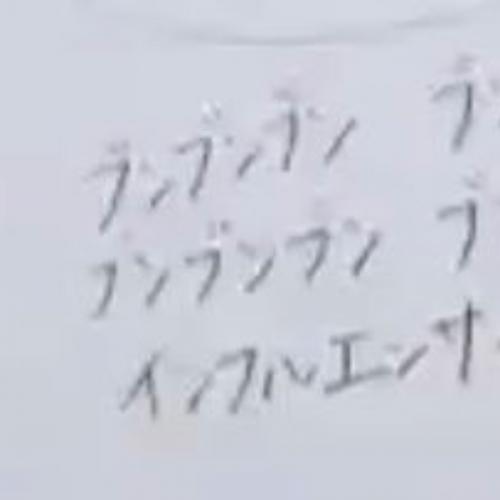 ブンブンブン ブ
ブンブンブン ブ
インフルエンサ